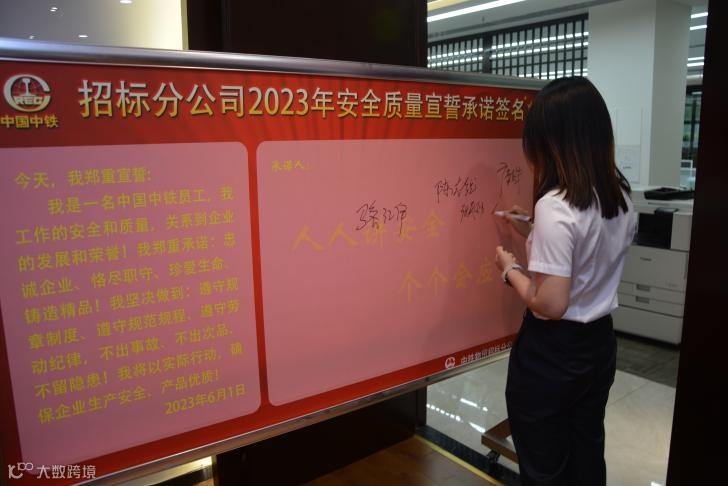 中国中铁
招标分公司2023年安全质量宣誓承诺签名
今天，我郑重宣誓：
我是一名中国中铁员工，我
工作的安全和质量，关系到企业
的发展和荣誉！我郑重承诺：忠
诚企业、恪尽职守、珍爱生命、
铸造精品！我坚决做到：遵守规
章制度、遵守规范规程、遵守劳
动纪律，不出事故、不出次品、
不留隐患！我将以实际行动，确
保企业生产安全、产品优质！
2023年6月1日
承诺人：
人人讲安全
个个会应
中铁物贸招标分公
大数跨境